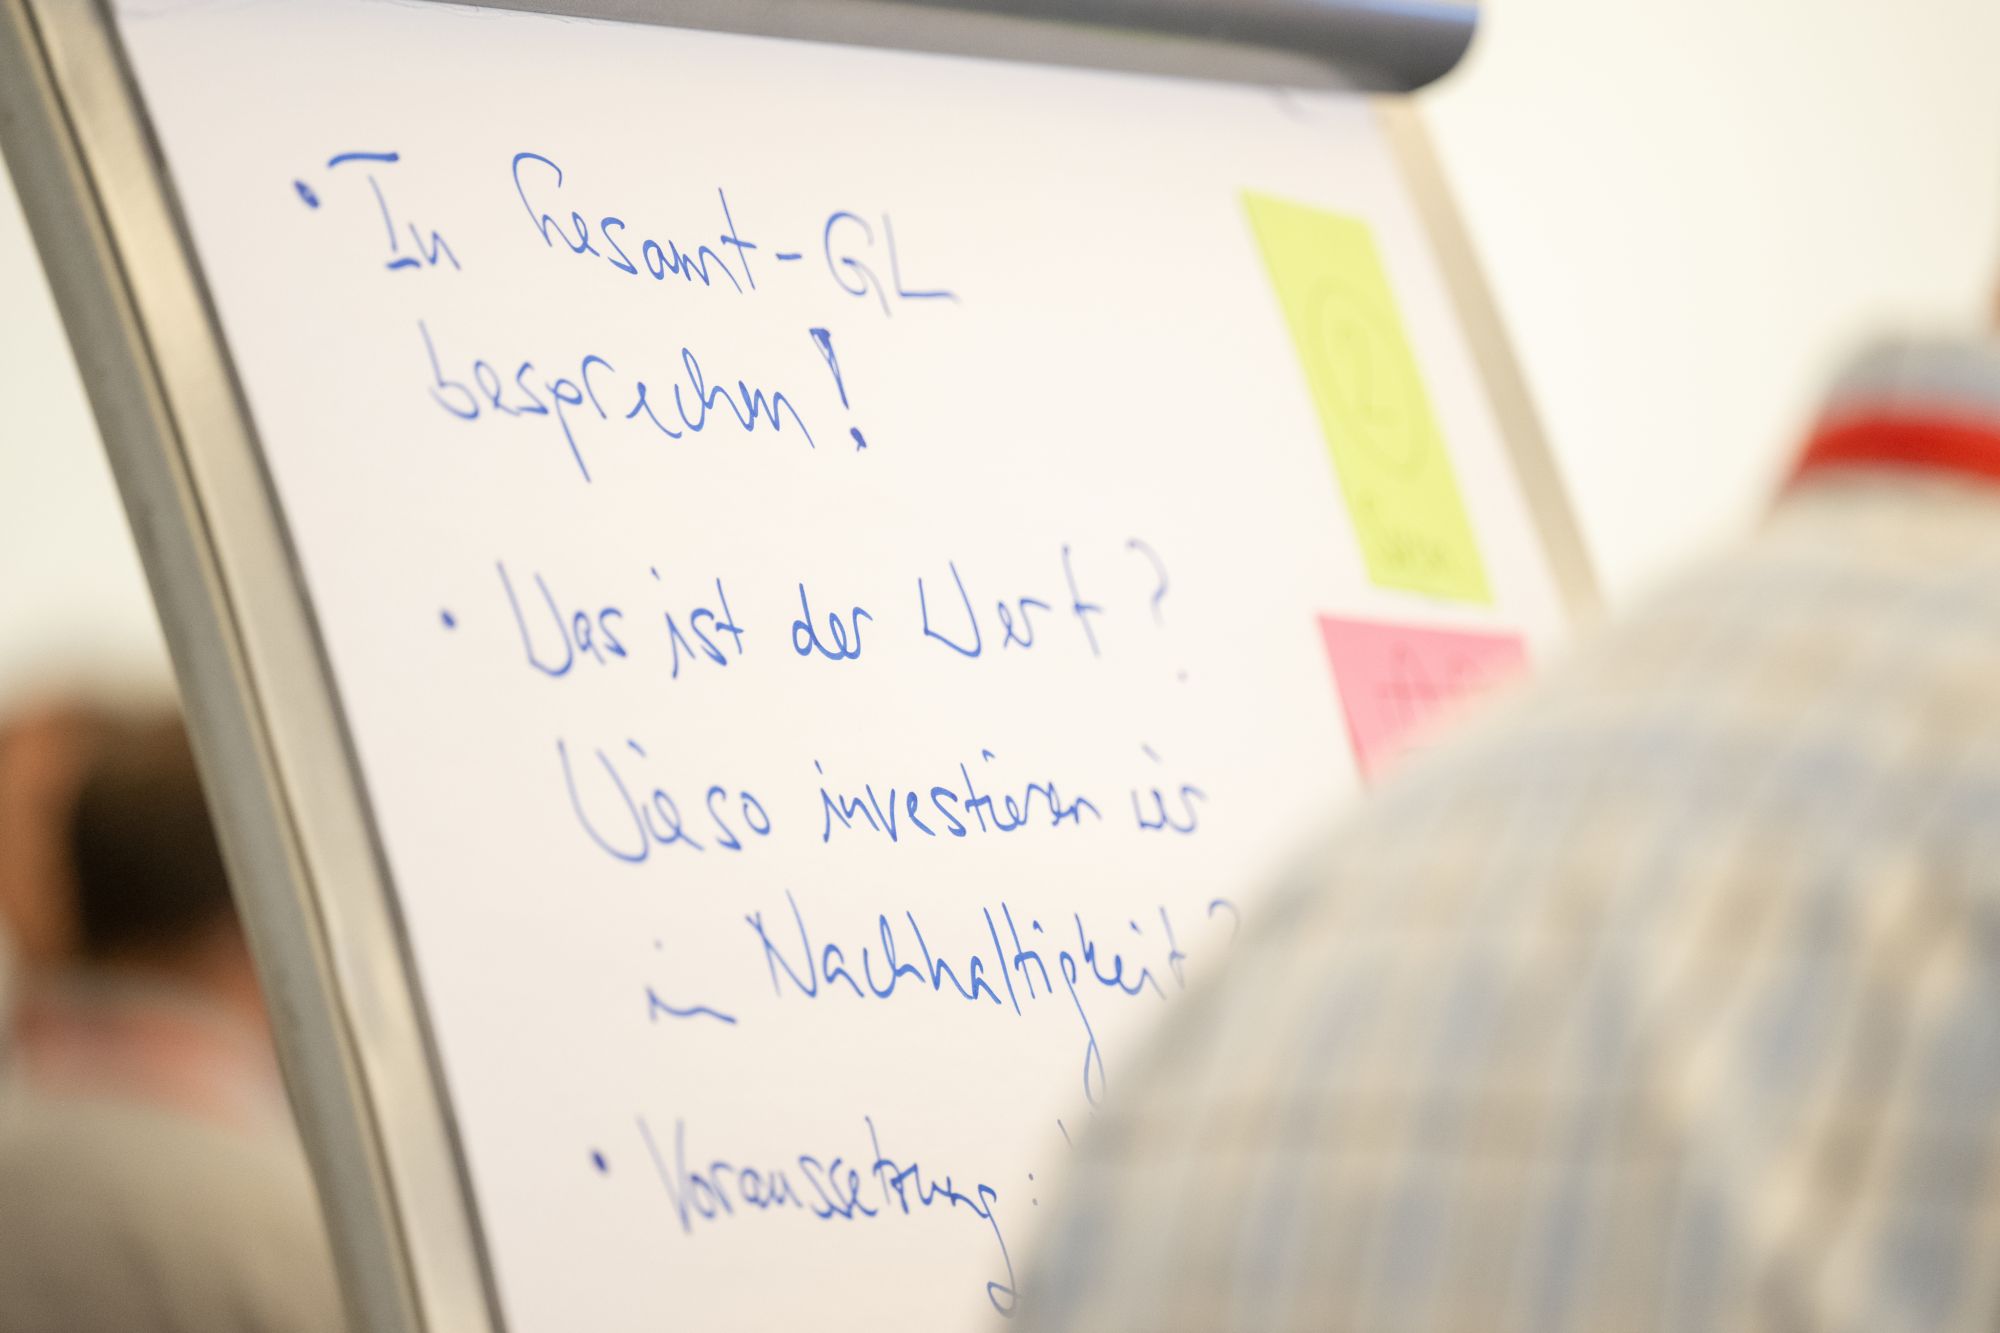 • In Gesamt-GL
besprechen!
• Was ist der Wert?
Wieso investieren wir
in Nachhaltigkeit?
• Voraussetzung: